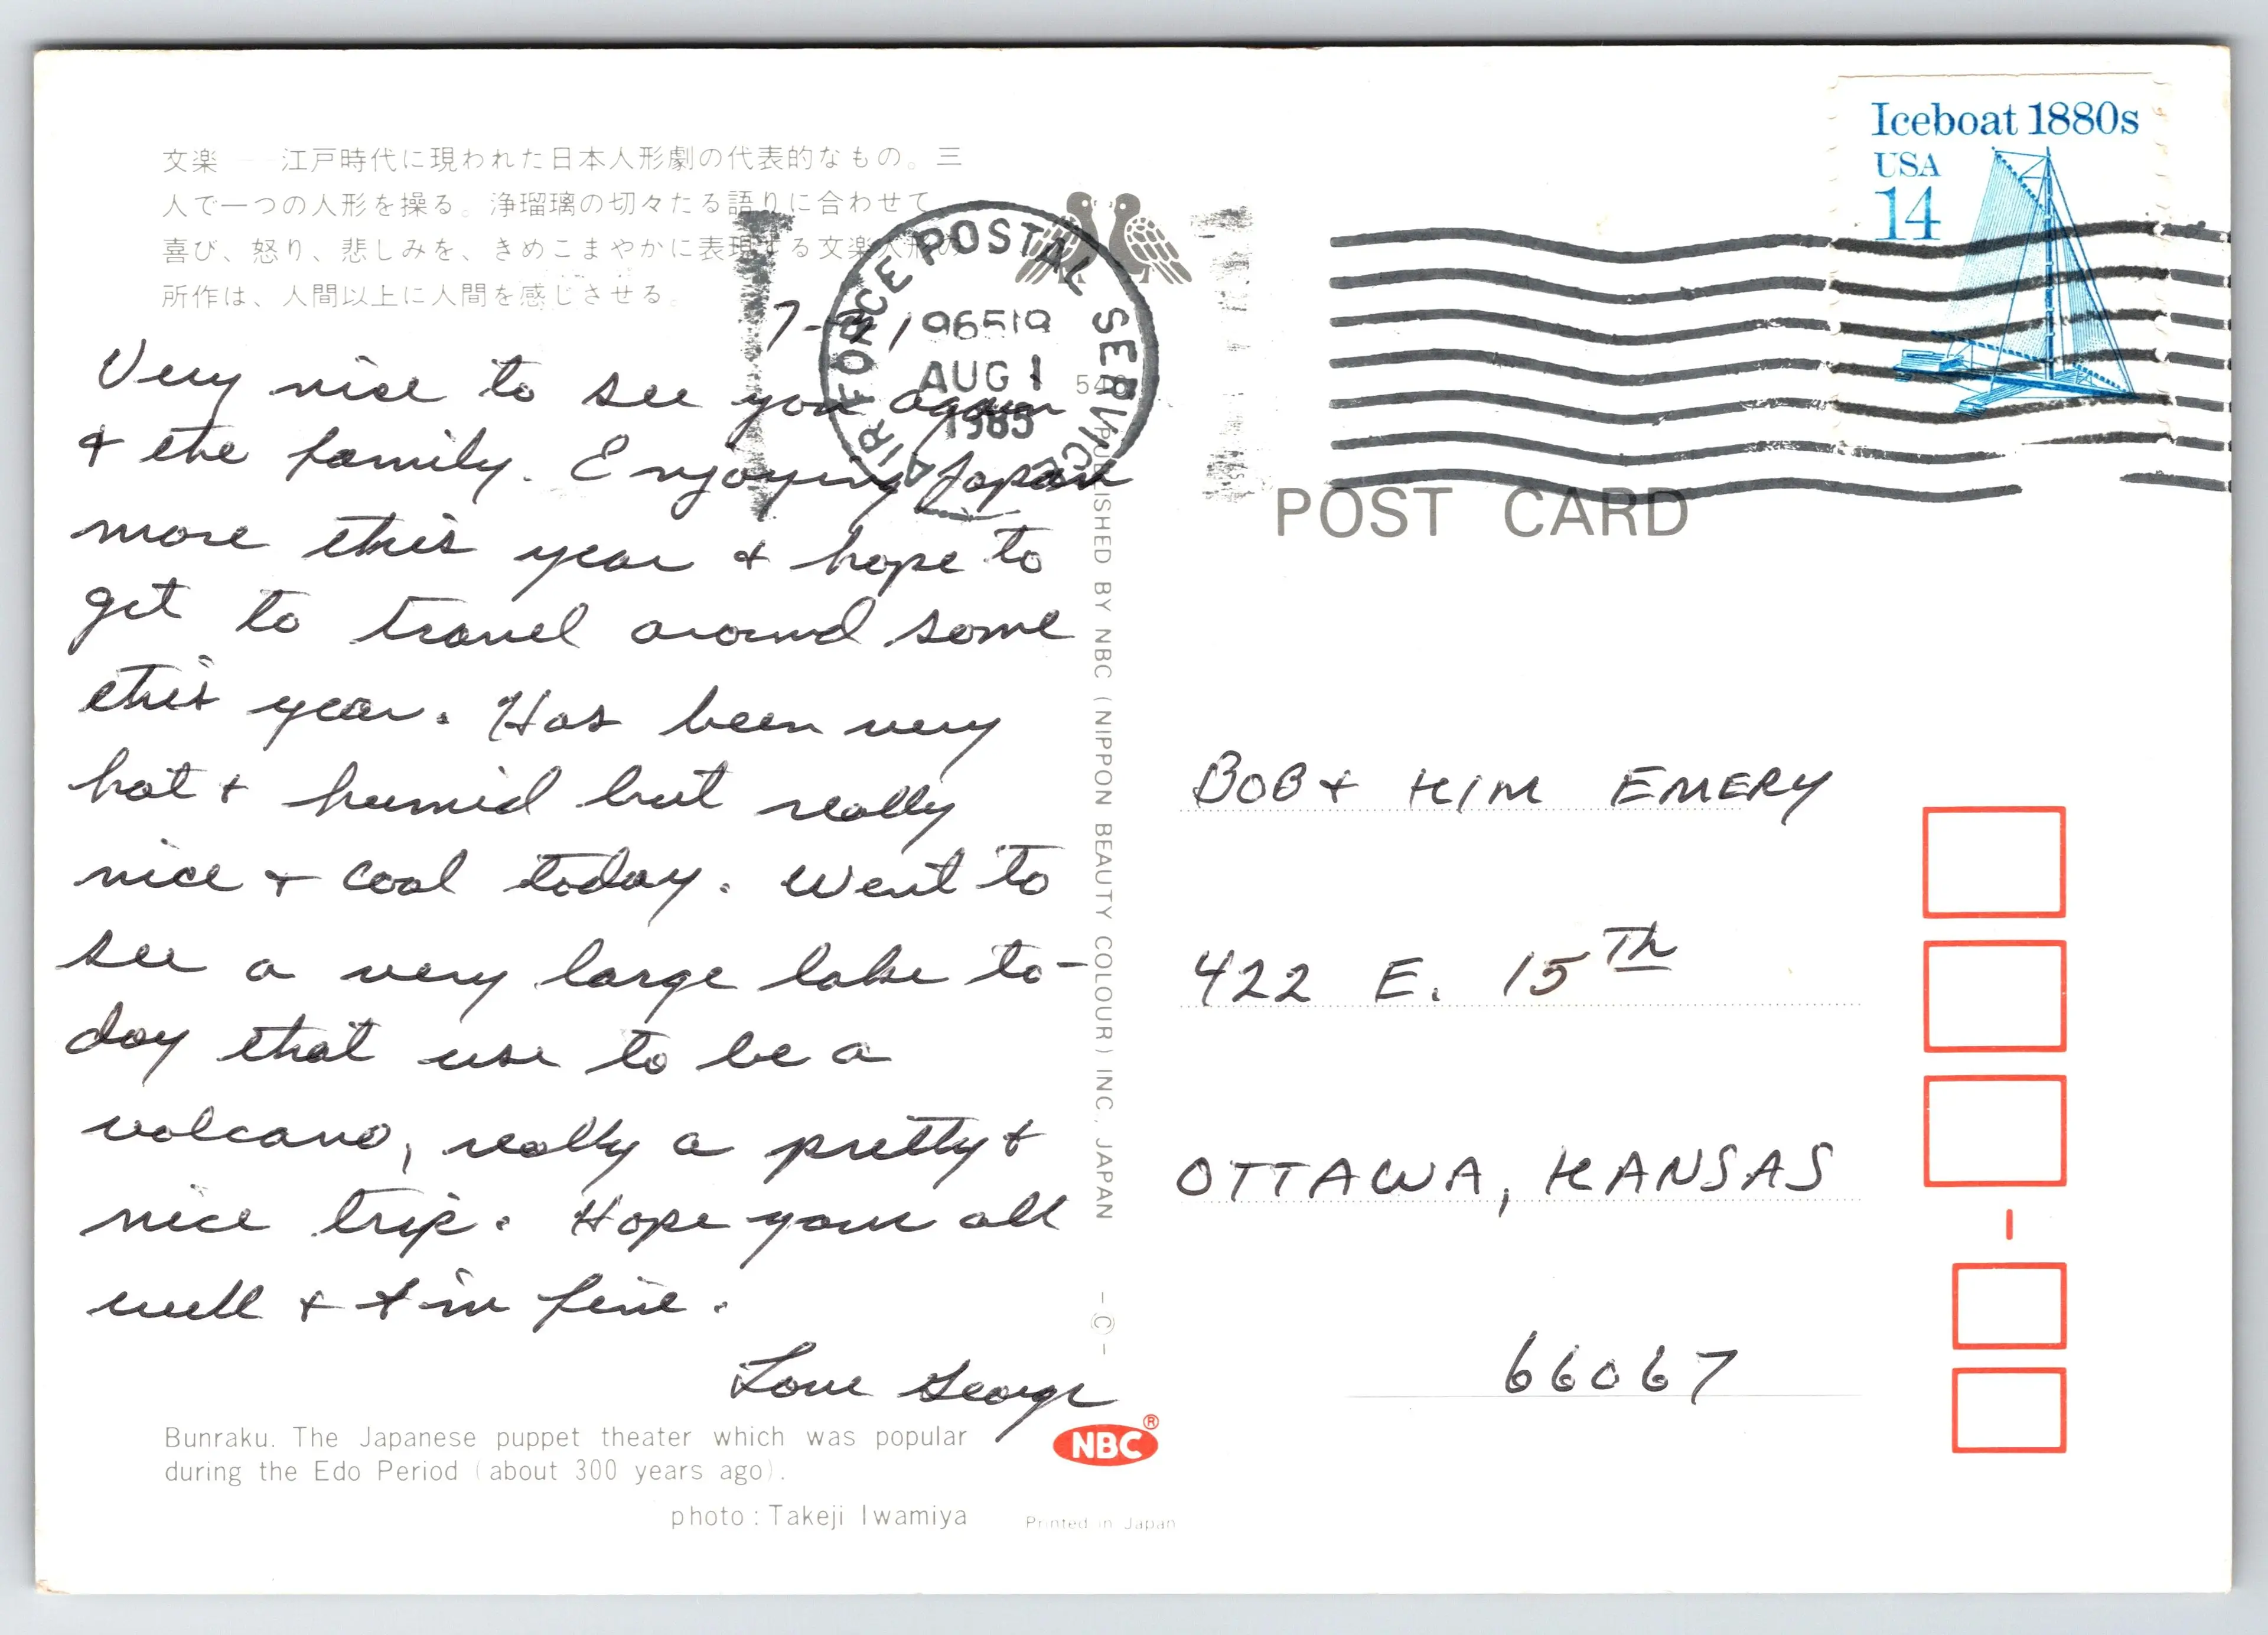 文楽 江戸時代に現われた日本人形劇の代表的なもの。三
人で一つの人形を操る。浄瑠璃の切々たる語りに合わせて
喜び、怒り、悲しみを、きめこまやかに表現する文楽人形の
所作は、人間以上に人間を感じさせる。
Very nice to see you again
& the family. Enjoying Japan
more this year & hope to
get to travel around some
this year. Has been very
hot & humid but really
nice & cool today. Went to
see a very large lake to-
day that use to be a
volcano, really a pretty &
nice trip. Hope your all
well & I'm fine.
Love George
Bunraku. The Japanese puppet theater which was popular
during the Edo Period (about 300 years ago).
photo : Takeji Iwamiya
Printed in Japan
NBC®
PUBLISHED BY NBC (NIPPON BEAUTY COLOUR) INC., JAPAN -©-
AIR FORCE POSTAL SERVICE
96519
AUG 1
1985
Iceboat 1880s
USA
14
POST CARD
BOB & KIM EMERY
422 E. 15TH
OTTAWA, KANSAS
66067